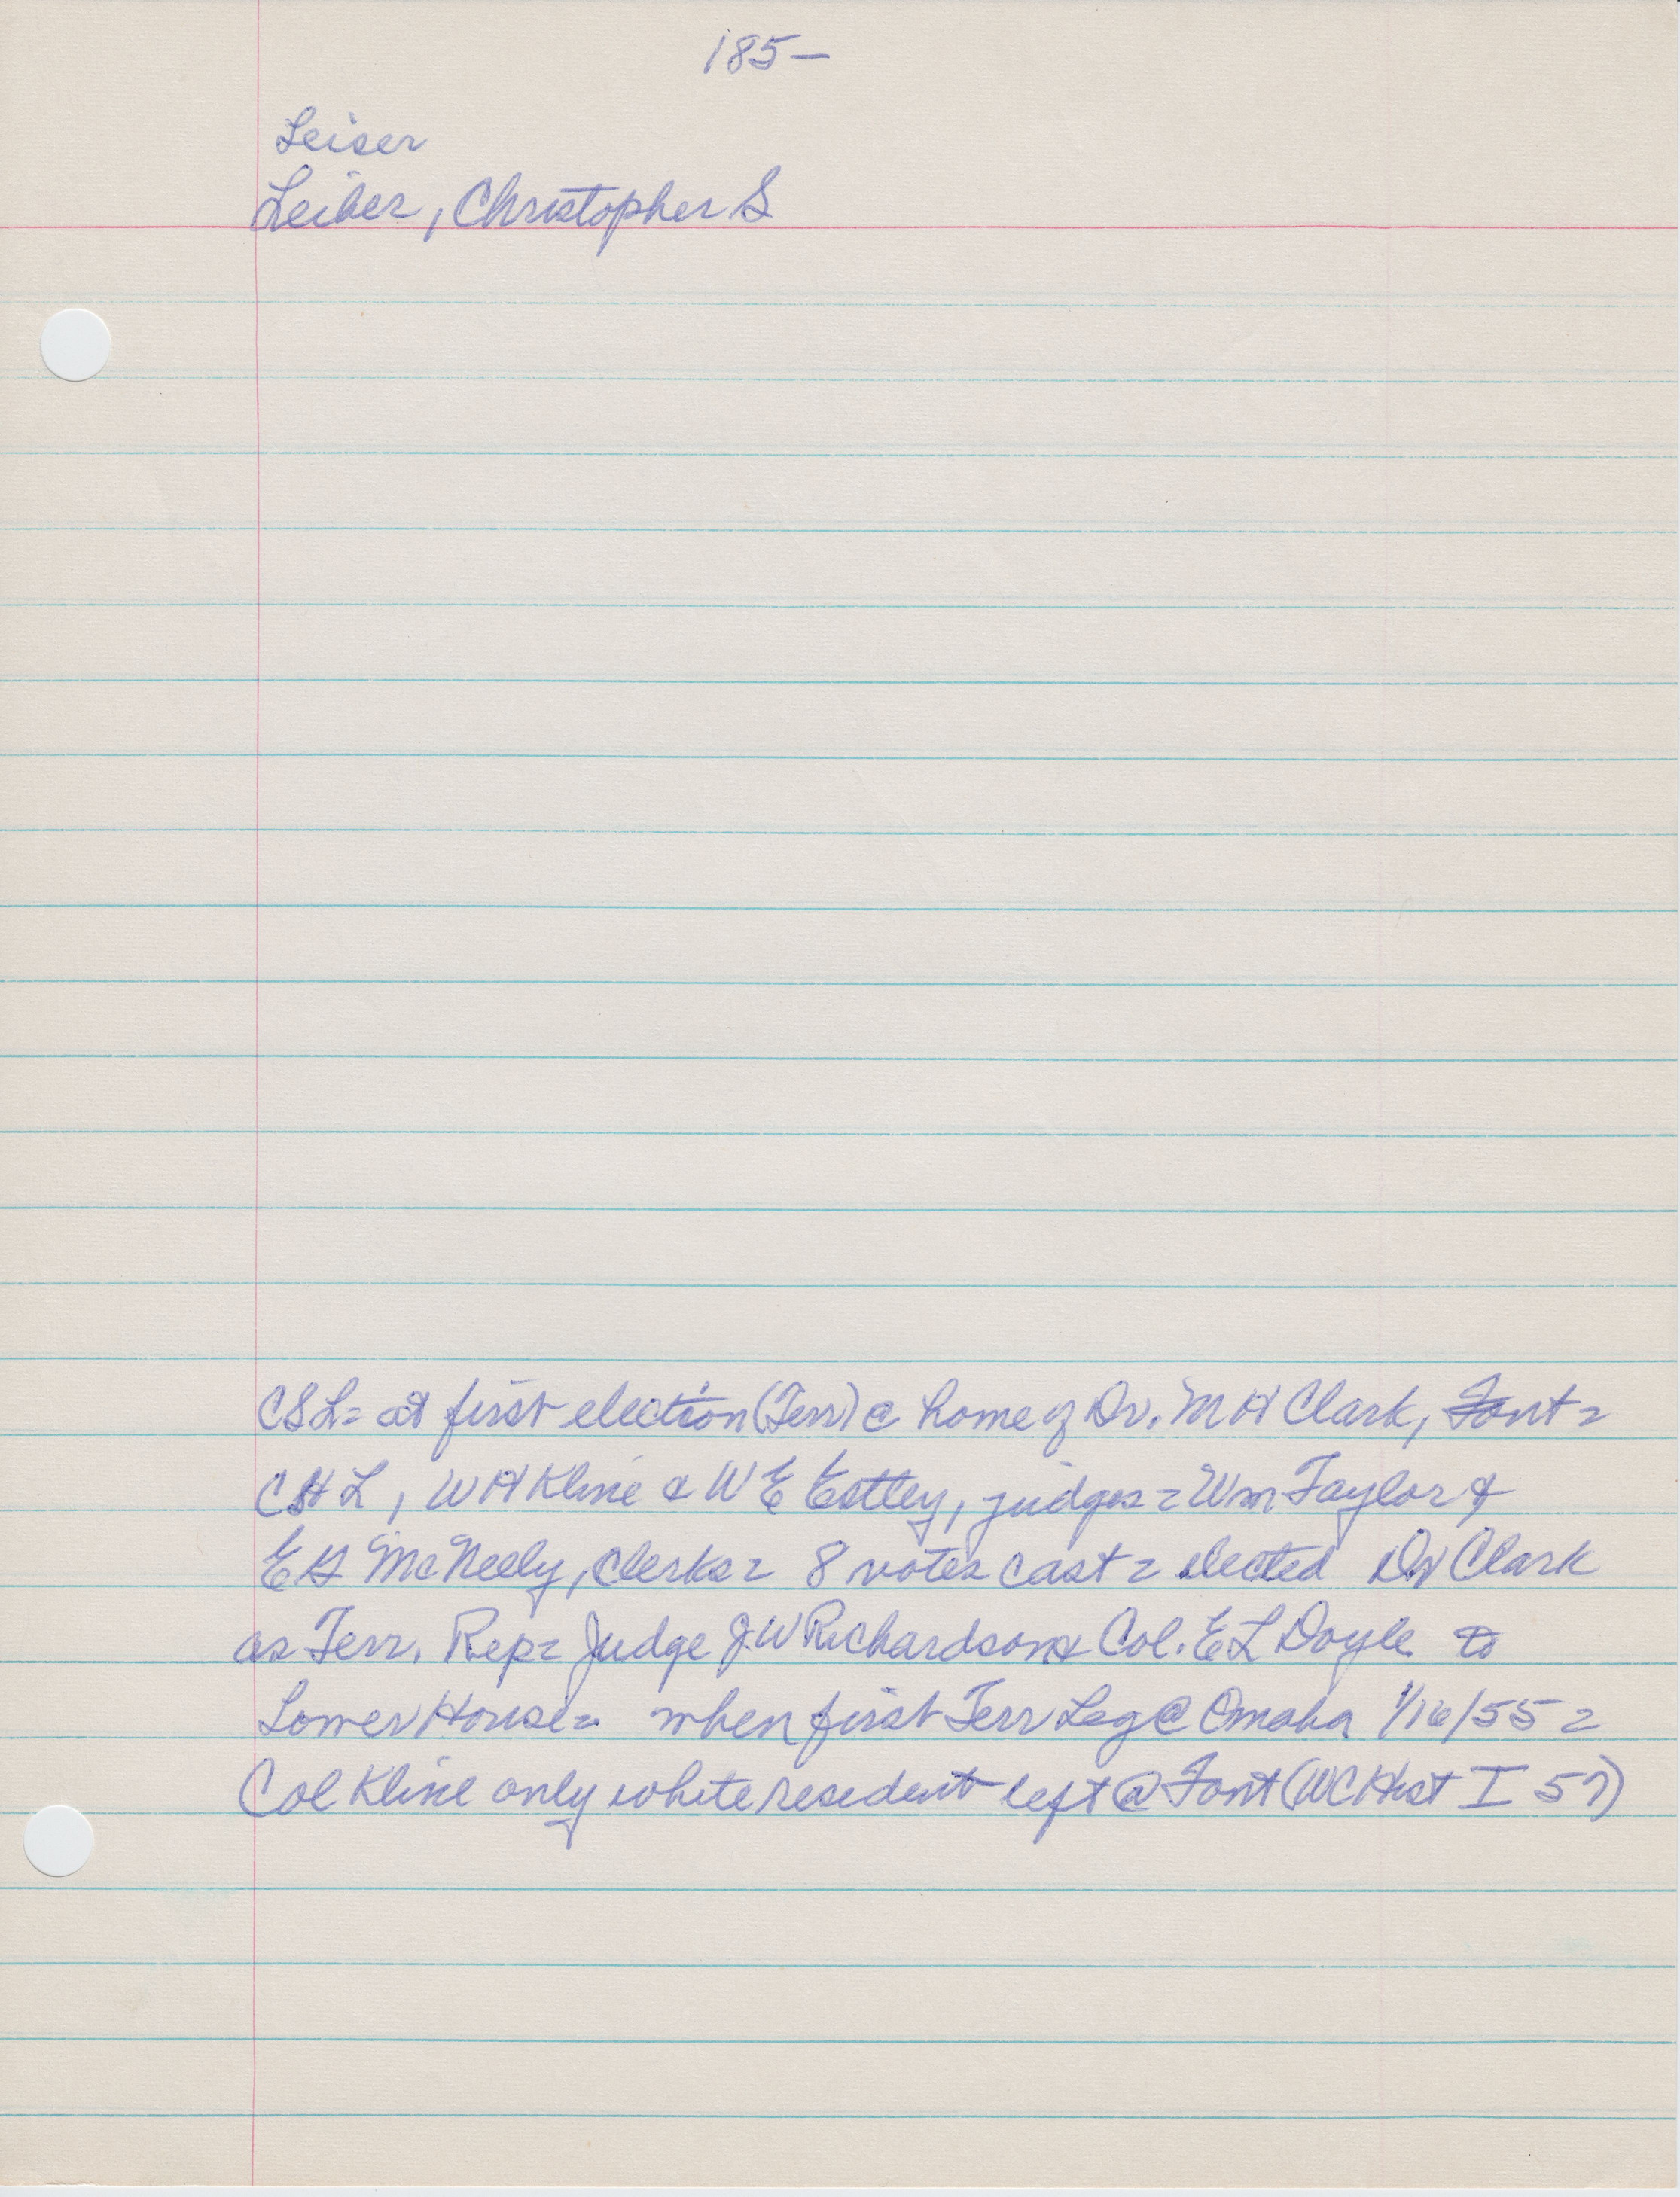 185-
Leiser
Leiber, Christopher S
CSL= at first election (Terr) @ home of Dr. M H Clark, Font=
C L, W H Kline & W E Estley, judges = Wm Taylor &
E G McNeely, Clerks = 8 votes cast = elected Dr Clark
as Terr. Rep = Judge J W Richardson & Col. E L Doyle to
Lower House = when first Terr Leg @ Omaha 1/16/55 =
Col Kline only white resident left @ Font (WC Hist I 57)